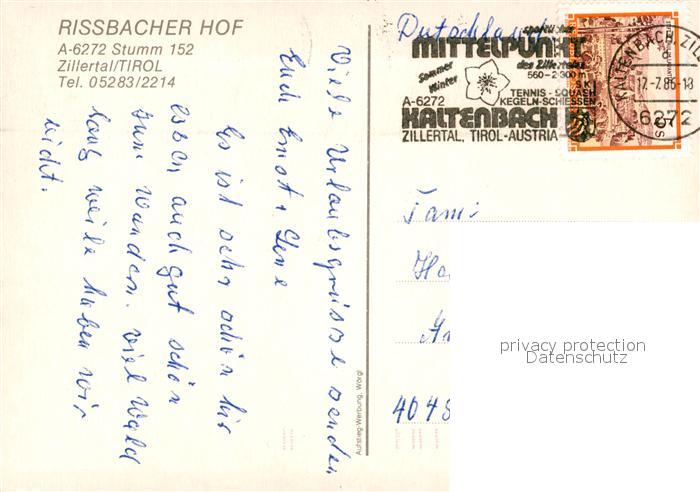 RISSBACHER HOF
A-6272 Stumm 152
Zillertal/TIROL
Tel. 05283/2214
Viele Urlaubsgrüsse senden
Euch Ernst +
Es ist sehr schön hir
essen auch gut schön
zum wandern. viel Wald
lang weile haben wir
nicht.
Aufstieg-Werbung, Wörgl
Dutschland
sportlicher
MITTELPUNKT
des Zillertales
Sommer
Winter
560-2300 m
SKI
TENNIS-SQUASH
KEGELN-SCHIESSEN
A-6272
KALTENBACH
ZILLERTAL, TIROL-AUSTRIA
KALTENBACH, ZILL
12.-7.86-18
6272
S
Fami
Ha
4048
privacy protection
Datenschutz